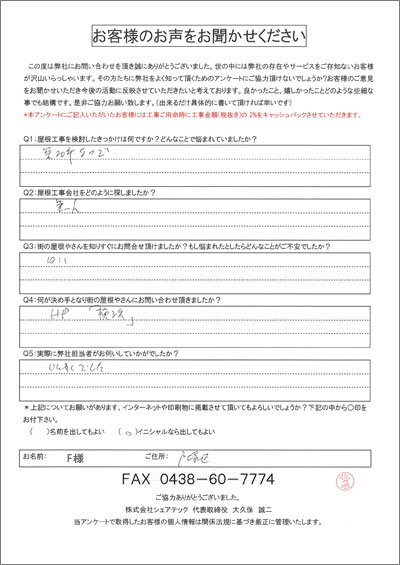 お客様のお声をお聞かせください
この度は弊社にお問い合わせを頂き誠にありがとうございました。世の中には弊社の存在やサービスをご存知ないお客様
が沢山いらっしゃいます。その方たちに弊社をよく知って頂くためのアンケートにご協力頂けないでしょうか？お客様のご意見
をお聞かせいただき今後の活動に反映させていただきたいと考えております。良かったこと、嬉しかったことどのような些細な
事でも結構です。是非ご協力お願い致します。（出来るだけ具体的に書いて頂ければ幸いです）
*本アンケートにご記入いただいたお客様には工事ご用命時に工事金額(税抜き)の 2%をキャッシュバックさせていただきます。
Q1:屋根工事を検討したきっかけは何ですか？どんなことで悩まれていましたか？
Q2:屋根工事会社をどのように探しましたか？
Q3:街の屋根やさんを知りすぐにお問合せ頂けましたか？もし悩まれたとしたらどんなことがご不安でしたか？
はい
Q4:何が決め手となり街の屋根やさんにお問い合わせ頂きましたか？
HP
Q5:実際に弊社担当者がお伺いしていかがでしたか？
＊上記についてお願いがあります。インターネットや印刷物に掲載させて頂いてもよろしいでしょうか？下記の中から〇印を
お付下さい。
（　）名前を出してもよい （○）イニシャルなら出してもよい
お名前: F様 ご住所:
FAX 0438-60-7774
ご協力ありがとうございました。
株式会社シェアテック 代表取締役 大久保 誠二
当アンケートで取得したお客様の個人情報は関係法規に基づき厳正に管理いたします。